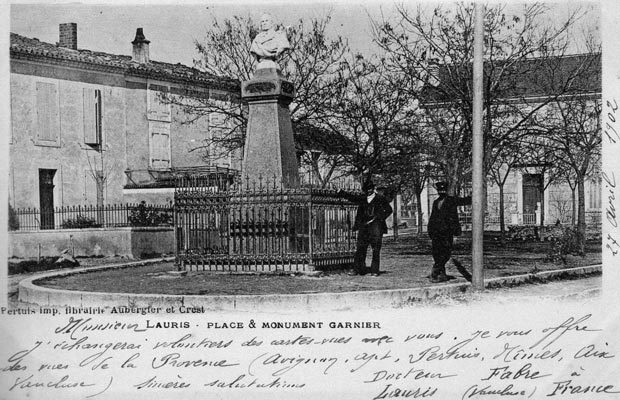 27 avril 1902
Pertuis imp. librairie Aubergier et Crest
LAURIS - PLACE & MONUMENT GARNIER
Monsieur
J'échangerai volontiers des cartes-vues avec vous. je vous offre
des vues de la Provence (Avignon, apt, Pertuis, Nimes, Aix
Vaucluse) Sincères salutations Docteur Fabre à
Lauris (Vaucluse) France